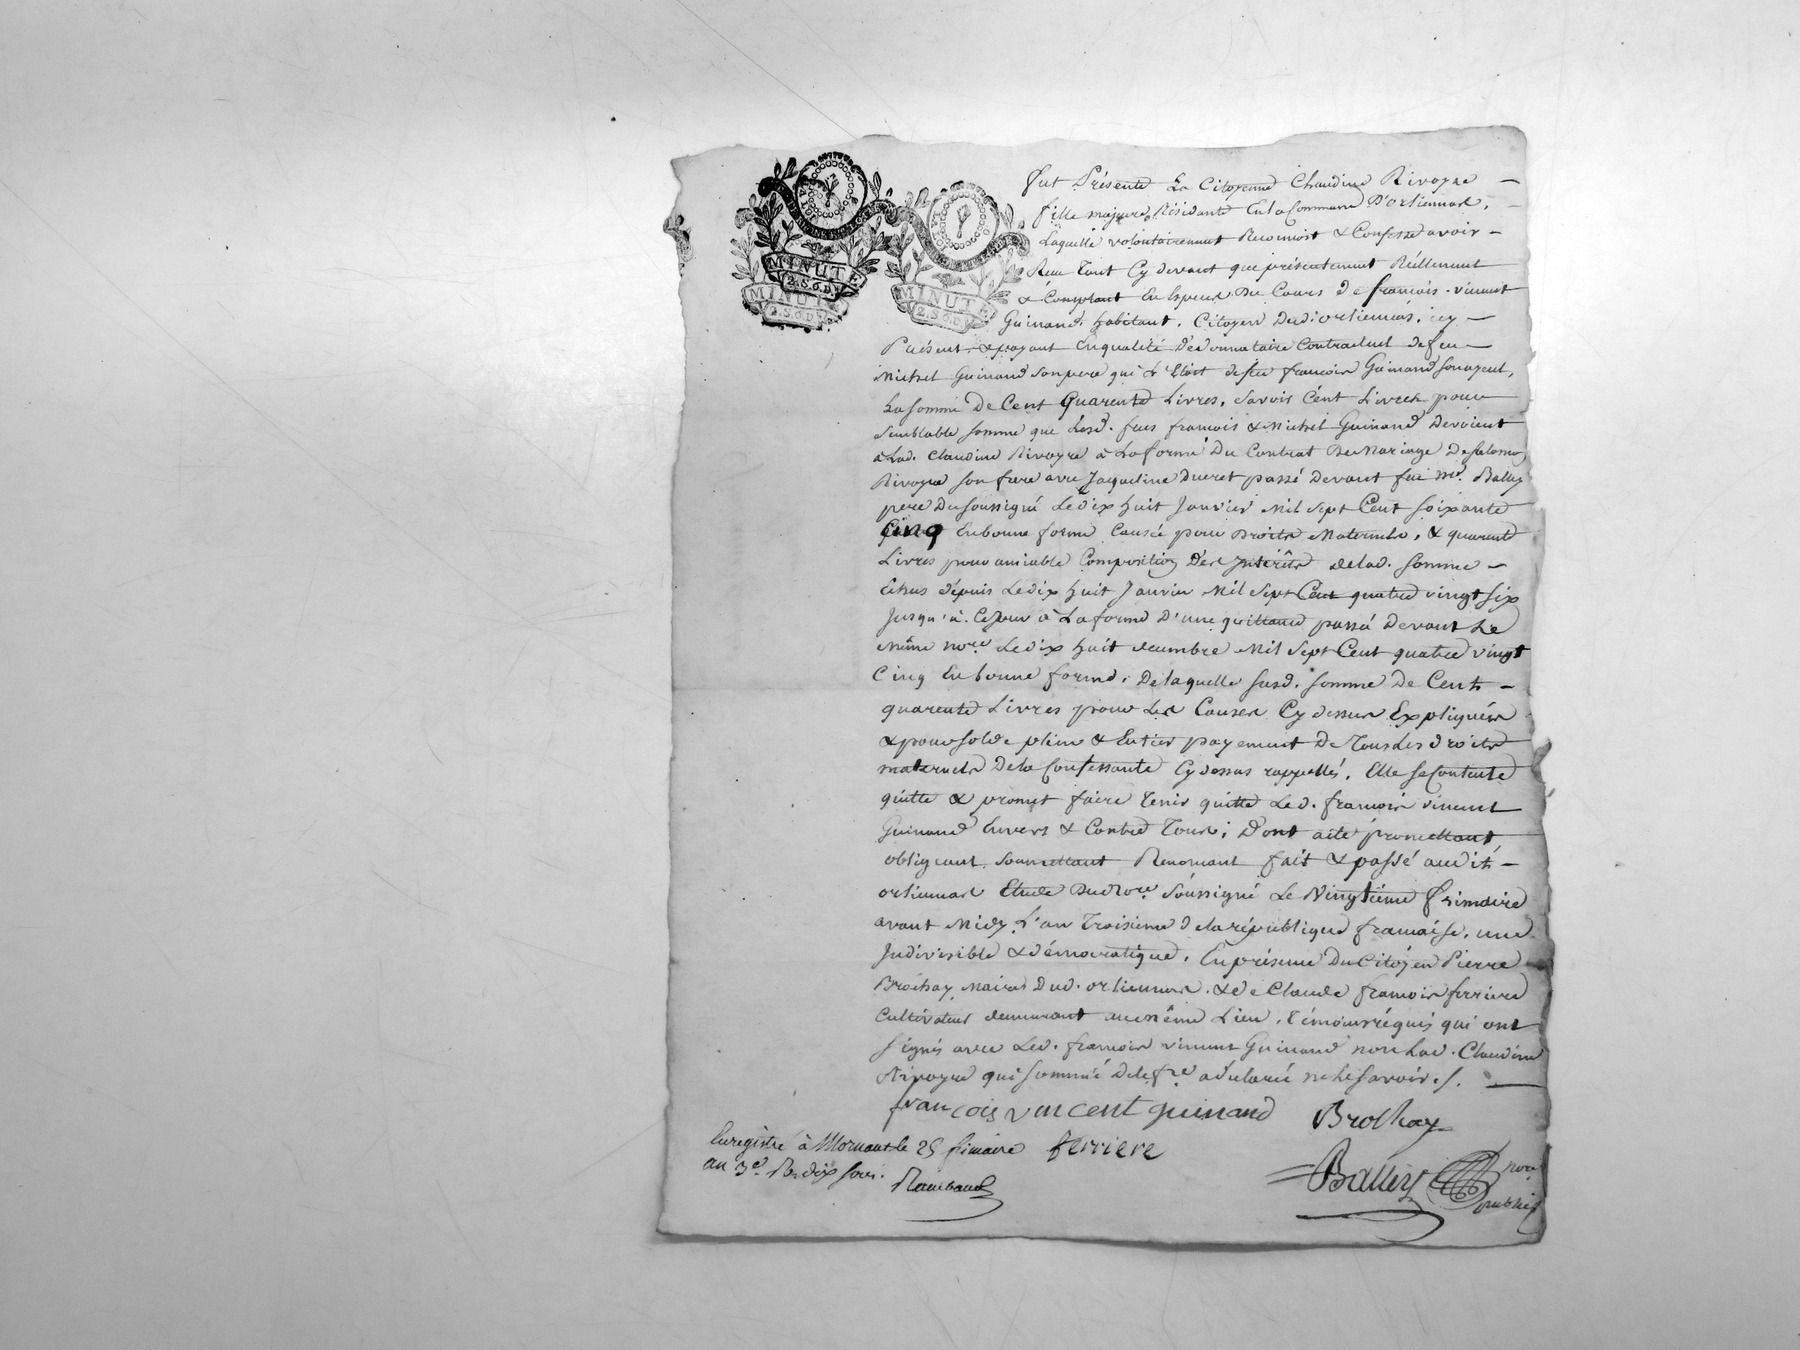 MINUTE
2.S.6.D
MINUTE
2.S.6.D
MINUTE
2.S.6.D
fut Présente La Citoyenne Claudine Rivoyre —
fille majeure, Résidante En la Commune D'orliennas, —
Laquelle volontairement Reconnoit & Confesse avoir —
Reçu Tant Cy devant que présentement Réellement
& Comptant En Especes Du Cours de françois vincent
Guinand habitant, Citoyen Dud. orliennas, icy —
Présent & payant En qualité de donnataire Contractuel de feu —
Michel Guinand Son pere qui L'Etoit de feu françois Guinand Son ayeul,
La Somme De Cent Quarente Livres, Savoir Cent Livres pour
Semblable Somme que Lesd. feus françois & Michel Guinand Devoient
à Lad. Claudine Rivoyre à La forme Du Contrat De Mariage De
Rivoyre son frere avec Jaqueline Ducret passé Devant feu Me. Balley
pere Du Soussigné Le dix huit Janvier Mil Sept Cent Soixante
Cinq En bonne forme Causée pour Droits Maternels, & quarente
Livres pour amiable Composition Des Intérêts de lad. Somme —
Echus depuis Le dix huit Janvier Mil Sept Cent quatre vingt Six
Jusqu'à Ce jour à La forme D'une quittance passé Devant Le
Même nore. Le dix huit decembre Mil Sept Cent quatre vingt
Cinq En bonne forme, De laquelle Susd. Somme De Cent —
quarente Livres pour Les Causes Cy dessus Expliquées
& pour Solde plein & Entier payement De Tous Les droits
maternels De la Confessante Cy dessus rappellés, Elle Se Contente
quitte & promet faire Tenir quitte Led. françois vincent
Guinand Envers & Contre Tous; Dont acte promettant,
obligeant, Soumettant Renonçant fait & passé audit —
orliennas Etude Dud nore. Soussigné Le Vingtième frimaire
avant Midy L'an Troisieme de la république française, une
Indivisible & démocratique, En présence Du Citoyen Pierre
Brochay Maire Dud. orliennas, & de Claude françois ferriere
Cultivateur demeurant au même Lieu, témoins réquis qui ont
Signés avec Led. françois vincent Guinand non Lad. Claudine
Rivoyre qui Sommée de le fre. a déclaré ne le Savoir ./. —
francois vincent guinand Brochay
Enregistré à Mornant le 25 frimaire ferriere
an 3e. R. dix sous.
Raimbaud
Balley nore
public